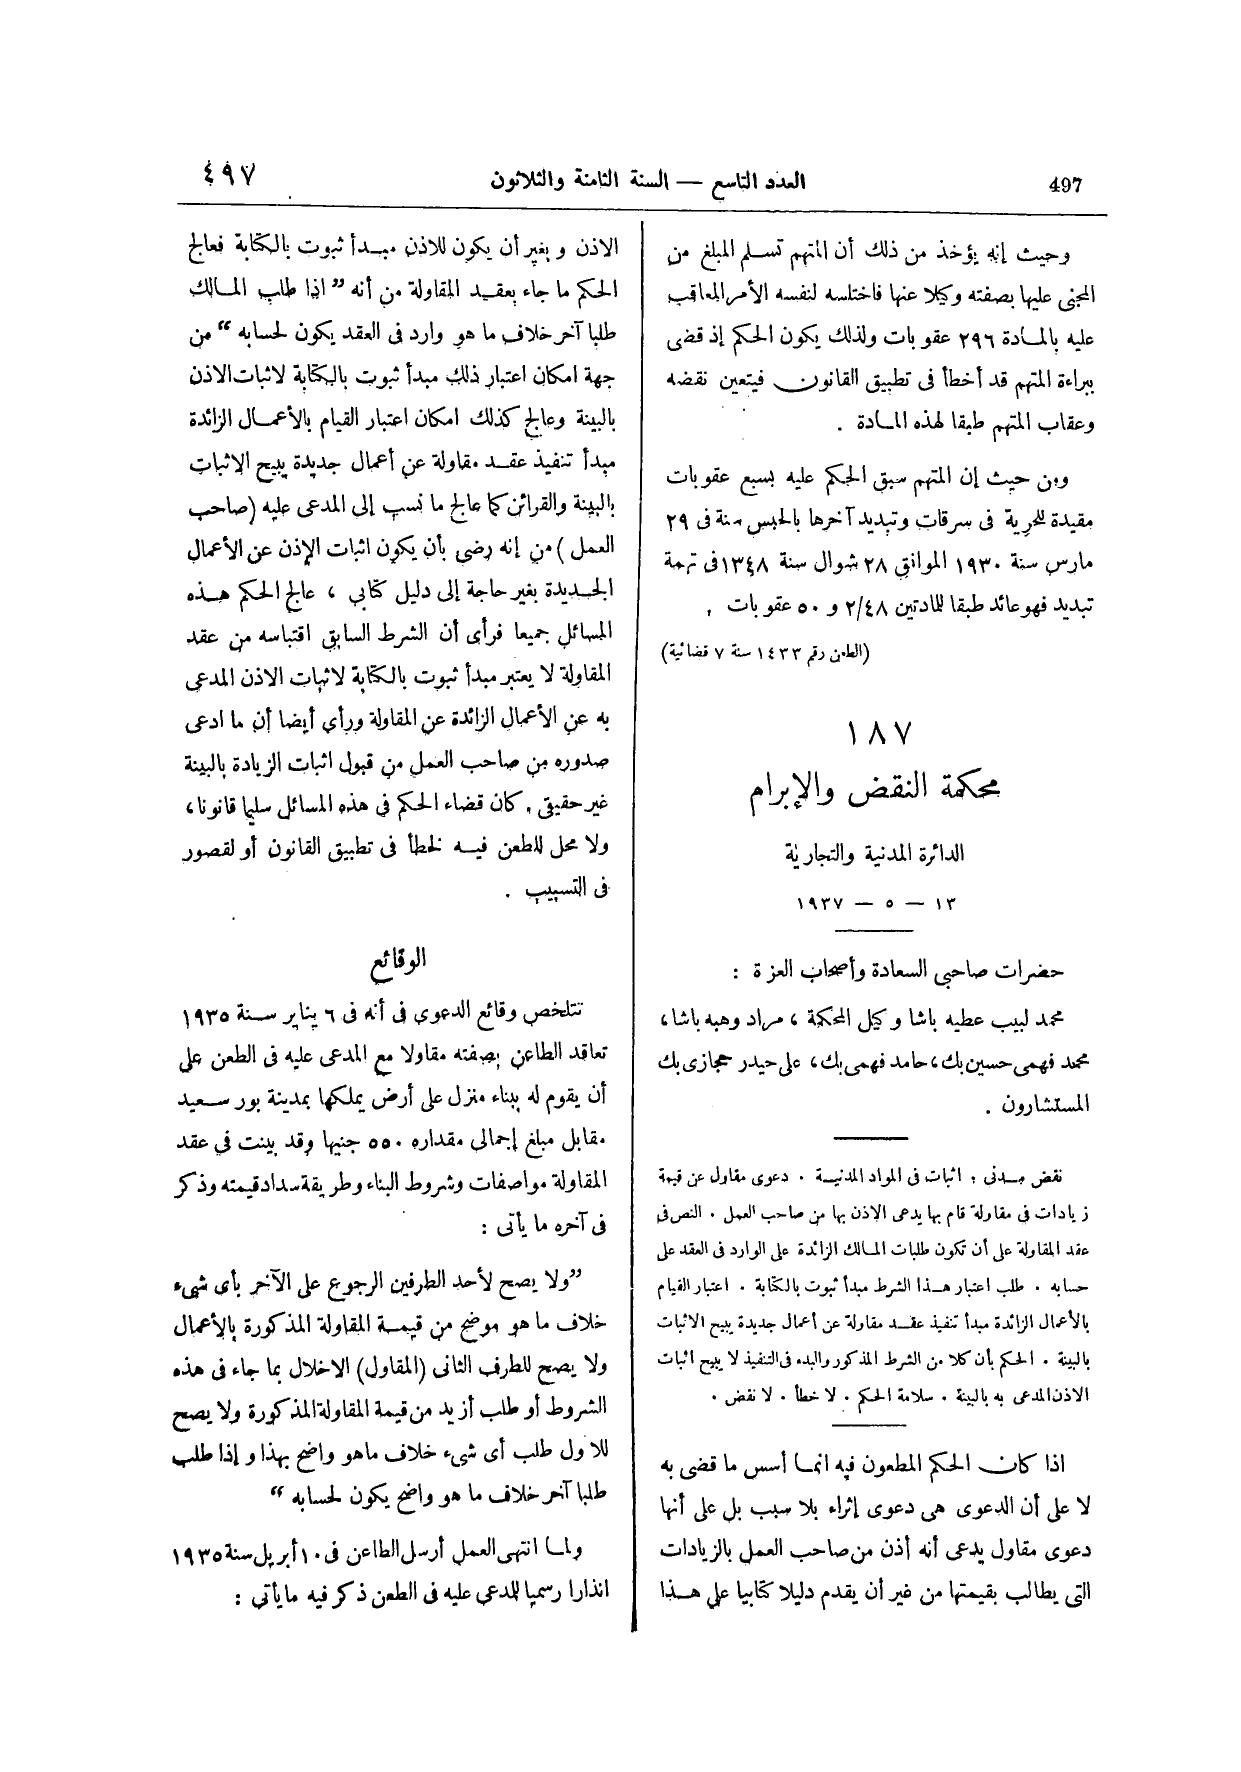 497
العدد التاسع — السنة الثامنة والثلاثون
٤٩٧
وحيث إنه يؤخذ من ذلك أن المتهم تسلم المبلغ من
المجنى عليها بصفته وكيلا عنها فاختلسه لنفسه الأمر المعاقب
عليه بالمادة ٢٩٦ عقوبات ولذلك يكون الحكم إذ قضى
ببراءة المتهم قد أخطأ فى تطبيق القانون فيتعين نقضه
وعقاب المتهم طبقا لهذه المادة .
ومن حيث إن المتهم سبق الحكم عليه بسبع عقوبات
مقيدة للحرية فى سرقات وتبديد آخرها بالحبس سنة فى ٢٩
مارس سنة ١٩٣٠ الموافق ٢٨ شوال سنة ١٣٤٨ فى تهمة
تبديد فهو عائد طبقا للمادتين ٢/٤٨ و ٥٠ عقوبات .
(الطعن رقم ١٤٣٣ سنة ٧ قضائية)
١٨٧
محكمة النقض والإبرام
الدائرة المدنية والتجارية
١٣ — ٥ — ١٩٣٧
حضرات صاحبى السعادة وأصحاب العزة :
محمد لبيب عطيه باشا وكيل المحكمة ، مراد وهبه باشا ،
محمد فهمى حسين بك ، حامد فهمى بك ، على حيدر حجازى بك
المستشارون .
نقض مدنى . اثبات فى المواد المدنية . دعوى مقاول عن قيمة
زيادات فى مقاولة قام بها يدعى الاذن بها من صاحب العمل . النص فى
عقد المقاولة على أن تكون طلبات المالك الزائدة على الوارد فى العقد على
حسابه . طلب اعتبار هذا الشرط مبدأ ثبوت بالكتابة . اعتبار القيام
بالأعمال الزائدة مبدأ تنفيذ عقد مقاولة عن أعمال جديدة يبيح الاثبات
بالبينة . الحكم بأن كلا من الشرط المذكور والبدء فى التنفيذ لا يبيح اثبات
الاذن المدعى به بالبينة . سلامة الحكم . لا خطأ . لا نقض .
اذا كان الحكم المطعون فيه انما أسس ما قضى به
لا على أن الدعوى هى دعوى إثراء بلا سبب بل على أنها
دعوى مقاول يدعى أنه أذن من صاحب العمل بالزيادات
التى يطالب بقيمتها من غير أن يقدم دليلا كتابيا على هذا
الاذن وبغير أن يكون للاذن مبدأ ثبوت بالكتابة فعالج
الحكم ما جاء بعقد المقاولة من أنه ” اذا طلب المالك
طلبا آخر خلاف ما هو وارد فى العقد يكون لحسابه “ من
جهة امكان اعتبار ذلك مبدأ ثبوت بالكتابة لاثبات الاذن
بالبينة وعالج كذلك امكان اعتبار القيام بالأعمال الزائدة
مبدأ تنفيذ عقد مقاولة عن أعمال جديدة يبيح الإثبات
بالبينة والقرائن كما عالج ما نسب إلى المدعى عليه (صاحب
العمل) من إنه رضى بأن يكون اثبات الإذن عن الأعمال
الجديدة بغير حاجة إلى دليل كتابي ، عالج الحكم هذه
المسائل جميعا فرأى أن الشرط السابق اقتباسه من عقد
المقاولة لا يعتبر مبدأ ثبوت بالكتابة لاثبات الاذن المدعى
به عن الأعمال الزائدة عن المقاولة ورأى أيضا أن ما ادعى
صدوره من صاحب العمل من قبول اثبات الزيادة بالبينة
غير حقيقى . كان قضاء الحكم فى هذه المسائل سليما قانونا ،
ولا محل للطعن فيه لخطأ فى تطبيق القانون أو لقصور
فى التسبيب .
الوقائع
تتلخص وقائع الدعوى فى أنه فى ٦ يناير سنة ١٩٣٥
تعاقد الطاعن بصفته مقاولا مع المدعى عليه فى الطعن على
أن يقوم له ببناء منزل على أرض يملكها بمدينة بور سعيد
مقابل مبلغ إجمالى مقداره ٥٥٠ جنيها وقد بينت فى عقد
المقاولة مواصفات وشروط البناء وطريقة سداد قيمته وذكر
فى آخره ما يأتى :
”ولا يصح لأحد الطرفين الرجوع على الآخر بأى شىء
خلاف ما هو موضح من قيمة المقاولة المذكورة بالأعمال
ولا يصح للطرف الثانى (المقاول) الاخلال بما جاء فى هذه
الشروط أو طلب أزيد من قيمة المقاولة المذكورة ولا يصح
للاول طلب أى شىء خلاف ماهو واضح بهذا وإذا طلب
طلبا آخر خلاف ما هو واضح يكون لحسابه “
ولما انتهى العمل أرسل الطاعن فى ١٠ أبريل سنة ١٩٣٥
انذارا رسميا للمدعى عليه فى الطعن ذكر فيه مايأتى :